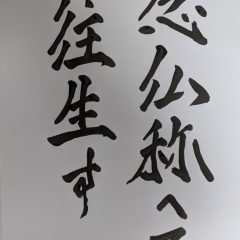 念仏称へ
往生す